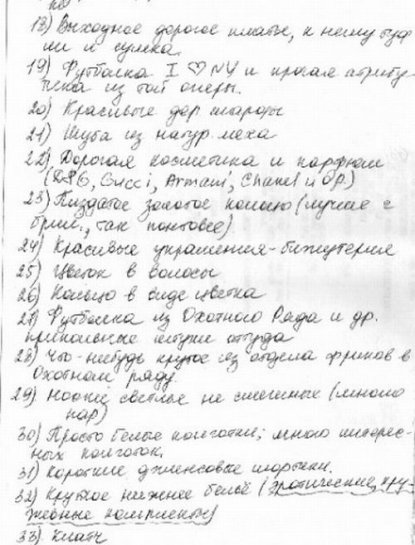 18) Выходное дорогое платье, к нему туф
ли и сумка.
19) Футболка I ♡ NY и прочая атрибу-
тика из той оперы.
20) Красивые дор шарфы
21) Шуба из натур меха
22) Дорогая косметика и парфюм
(D&G, Gucci, Armani, Chanel и др.)
23) Пиздатое золотое кольцо (лучше с
брил., так понтовее)
24) Красивые украшения-бижутерия
25) Цветок в волосы
26) Кольцо в виде цветка
27) Футболка из Охотного Ряда и др.
прикольные штуки оттуда
28) Что-нибудь крутое из отдела фриков в
Охотном ряду.
29) Носки светлые не смешных (много
пар)
30) Просто белые колготки; много интерес-
ных колготок.
31) Короткие джинсовые шортики.
32) Крутое нижнее бельё (эротические, кру-
жевные комплекты)
33) Клатч